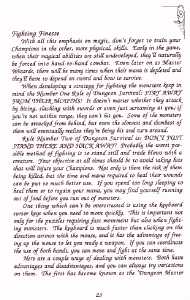 Fighting Finesse
With all this emphasis on magic, don't forget to train your
champions in the other, more physical, skills. Early in the game,
when their magical abilities are still undeveloped, they'll naturally
be forced into hand-to-hand combat. Even later on as Master
Wizards, there will be many times when their mana is depleted and
they'll have to depend on sword and bow to survive.
When developing a strategy for fighting the monsters keep in
mind the Number One Rule of Dungeon Survival: STAY AWAY
FROM THEIR MOUTHS! It doesn't matter whether they attack
by biting, slashing with swords or even just screaming at you; if
you're not within range, they can't hit you. Some of the monsters
can be attacked from behind, but even the slowest and dumbest of
them will eventually realize they're being hit and turn around.
Rule Number Two of Dungeon Survival is: DON'T JUST
STAND THERE AND HACK AWAY! Probably the worst
method of fighting is to stand still and trade blows with a
creature. Your objective at all times should be to avoid taking hits
that will injure your Champions. Not only is there the risk of them
being killed, but the time and mana required to heal their wounds
can be put to much better use. If you spend too long sleeping to
heal them or to regain your mana, you may find yourself running
out of food before you run out of monsters.
One thing which can't be overstressed is using the keyboard
cursor keys when you need to move quickly. This is important not
only for the puzzles requiring fast movement but also when fight-
ing monsters. The keyboard is much faster than clicking on the
direction arrows with the mouse, and it has the advantage of free-
ing up the mouse to let you ready a weapon. If you can coordinate
the use of both hands, you can move and fight at the same time.
Here are a couple ways of dealing with monsters. Both have
advantages and disadvantages, and you can always try variations
on them. The first has become known as the "Dungeon Master
23